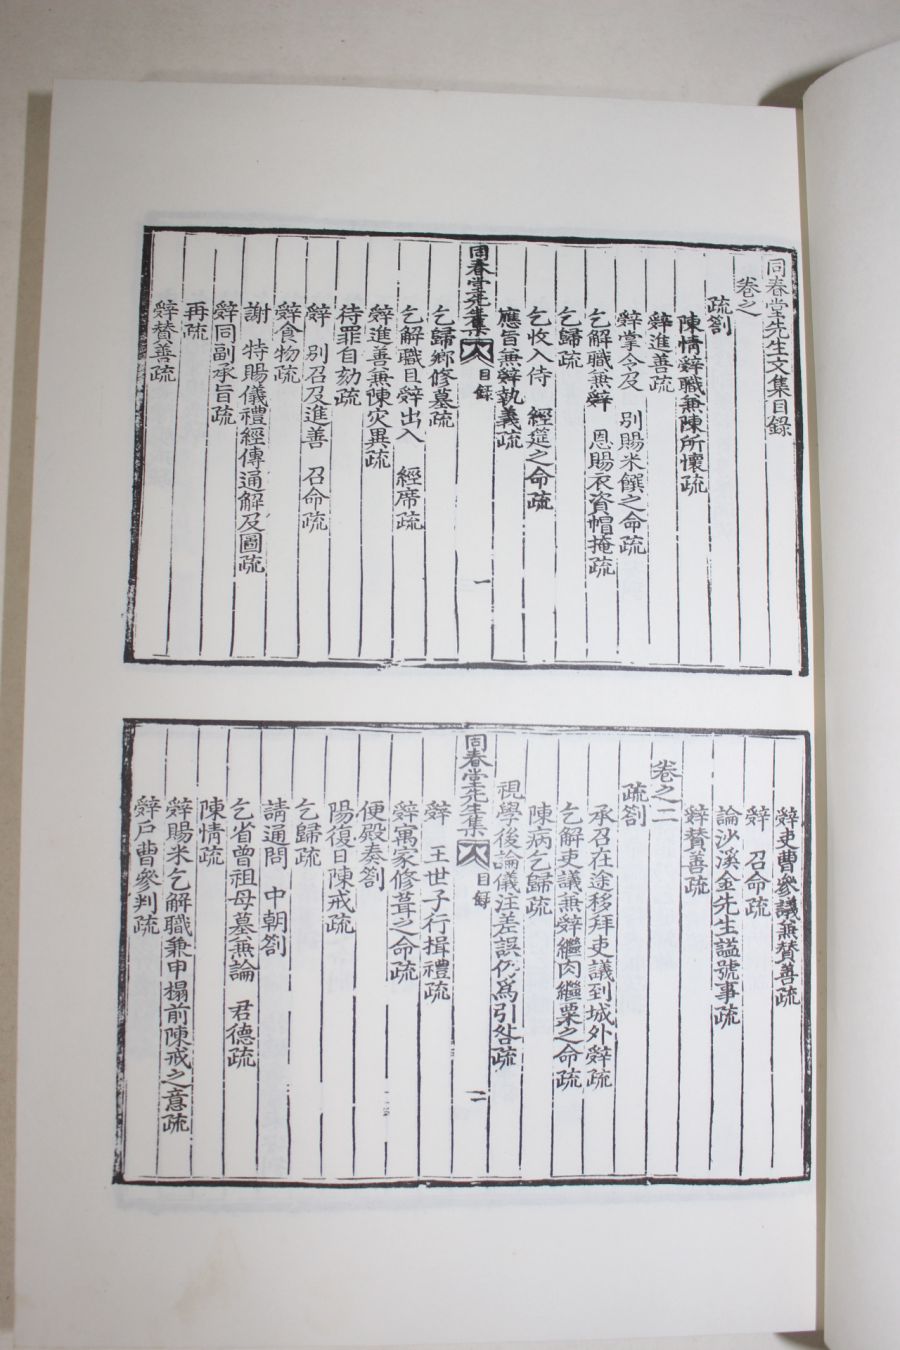 同春堂先生文集目錄
卷之一
疏劄
陳情辭職兼陳所懷疏
辭進善疏
辭掌令及 別賜米饌之命疏
乞解職兼辭 恩賜衣資帽掩疏
乞歸疏
乞收入侍 經筵之命疏
應旨兼辭執義疏
同春堂先生集 目錄 一
乞歸鄉修墓疏
乞解職且辭出入 經席疏
辭進善兼陳灾異疏
待罪自劾疏
辭 別召及進善 召命疏
辭食物疏
謝 特賜儀禮經傳通解及圖疏
辭同副承旨疏
再疏
辭賛善疏
辭吏曹參議兼賛善疏
辭 召命疏
論沙溪金先生謚號事疏
辭賛善疏
卷之二
疏劄
承召在途移拜吏議到城外辭疏
乞解吏議兼辭繼肉繼粟之命疏
陳病乞歸疏
視學後論儀注差誤仍爲引咎疏
同春堂先生集 目錄 二
辭 王世子行揖禮疏
辭寓家修葺之命疏
便殿奏劄
陽復日陳戒疏
乞歸疏
請通問 中朝劄
乞省曾祖母墓兼論 君德疏
陳情疏
辭賜米乞解職兼申榻前陳戒之意疏
辭戶曹參判疏